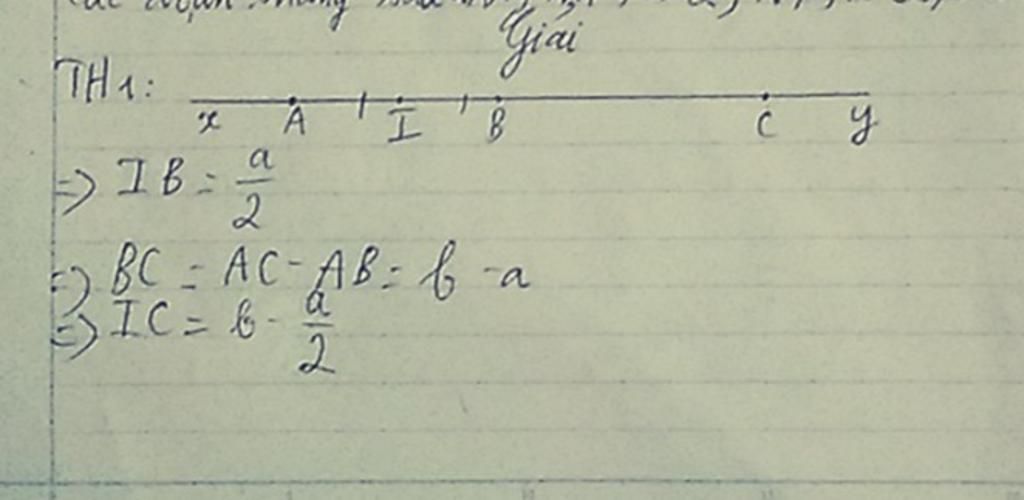 Giải
TH1:
x A I B C y
=> IB = a/2
=> BC = AC - AB = b - a
=> IC = b - a/2